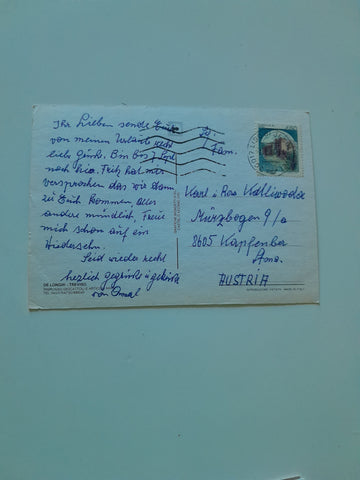 Ihr Lieben sende Euch
von meinem Urlaub recht
liebe Grüße. Bin bis 7. Sept
noch hier. Fritz hat mir
versprochen das wir dann
zu Euch kommen, alles
andere mündlich, Freue
mich schon auf ein
Wiedersehn.
Seid wieder recht
herzlich gegrüßt u geküßt
von
DE LONGHI - TREVISO
Fa.
Fam.
Karl u. Rosa
Mürzbogen 9/a
8605 Kapfenberg
AUSTRIA